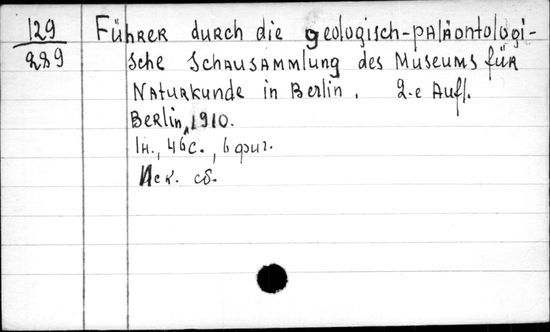 129
289
Führer durch die geologisch-paläontologi-
sche Schausammlung des Museums für
Naturkunde in Berlin. 2-e Aufl.
Berlin, 1910.
1н., 46с., 6 фиг.
Иск. сб.